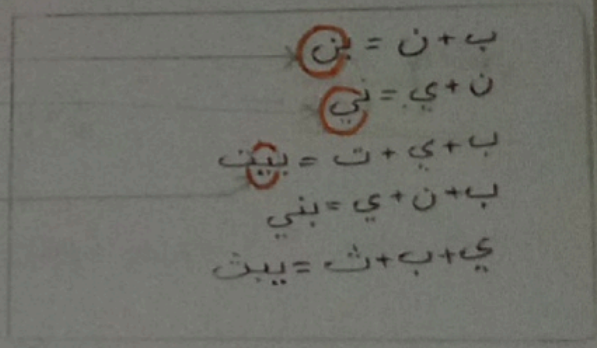 ب + ن = بن
ن + ي = ني
ب + ي + ت = بيت
ب + ن + ي = بني
ي + ب + ث = يبث